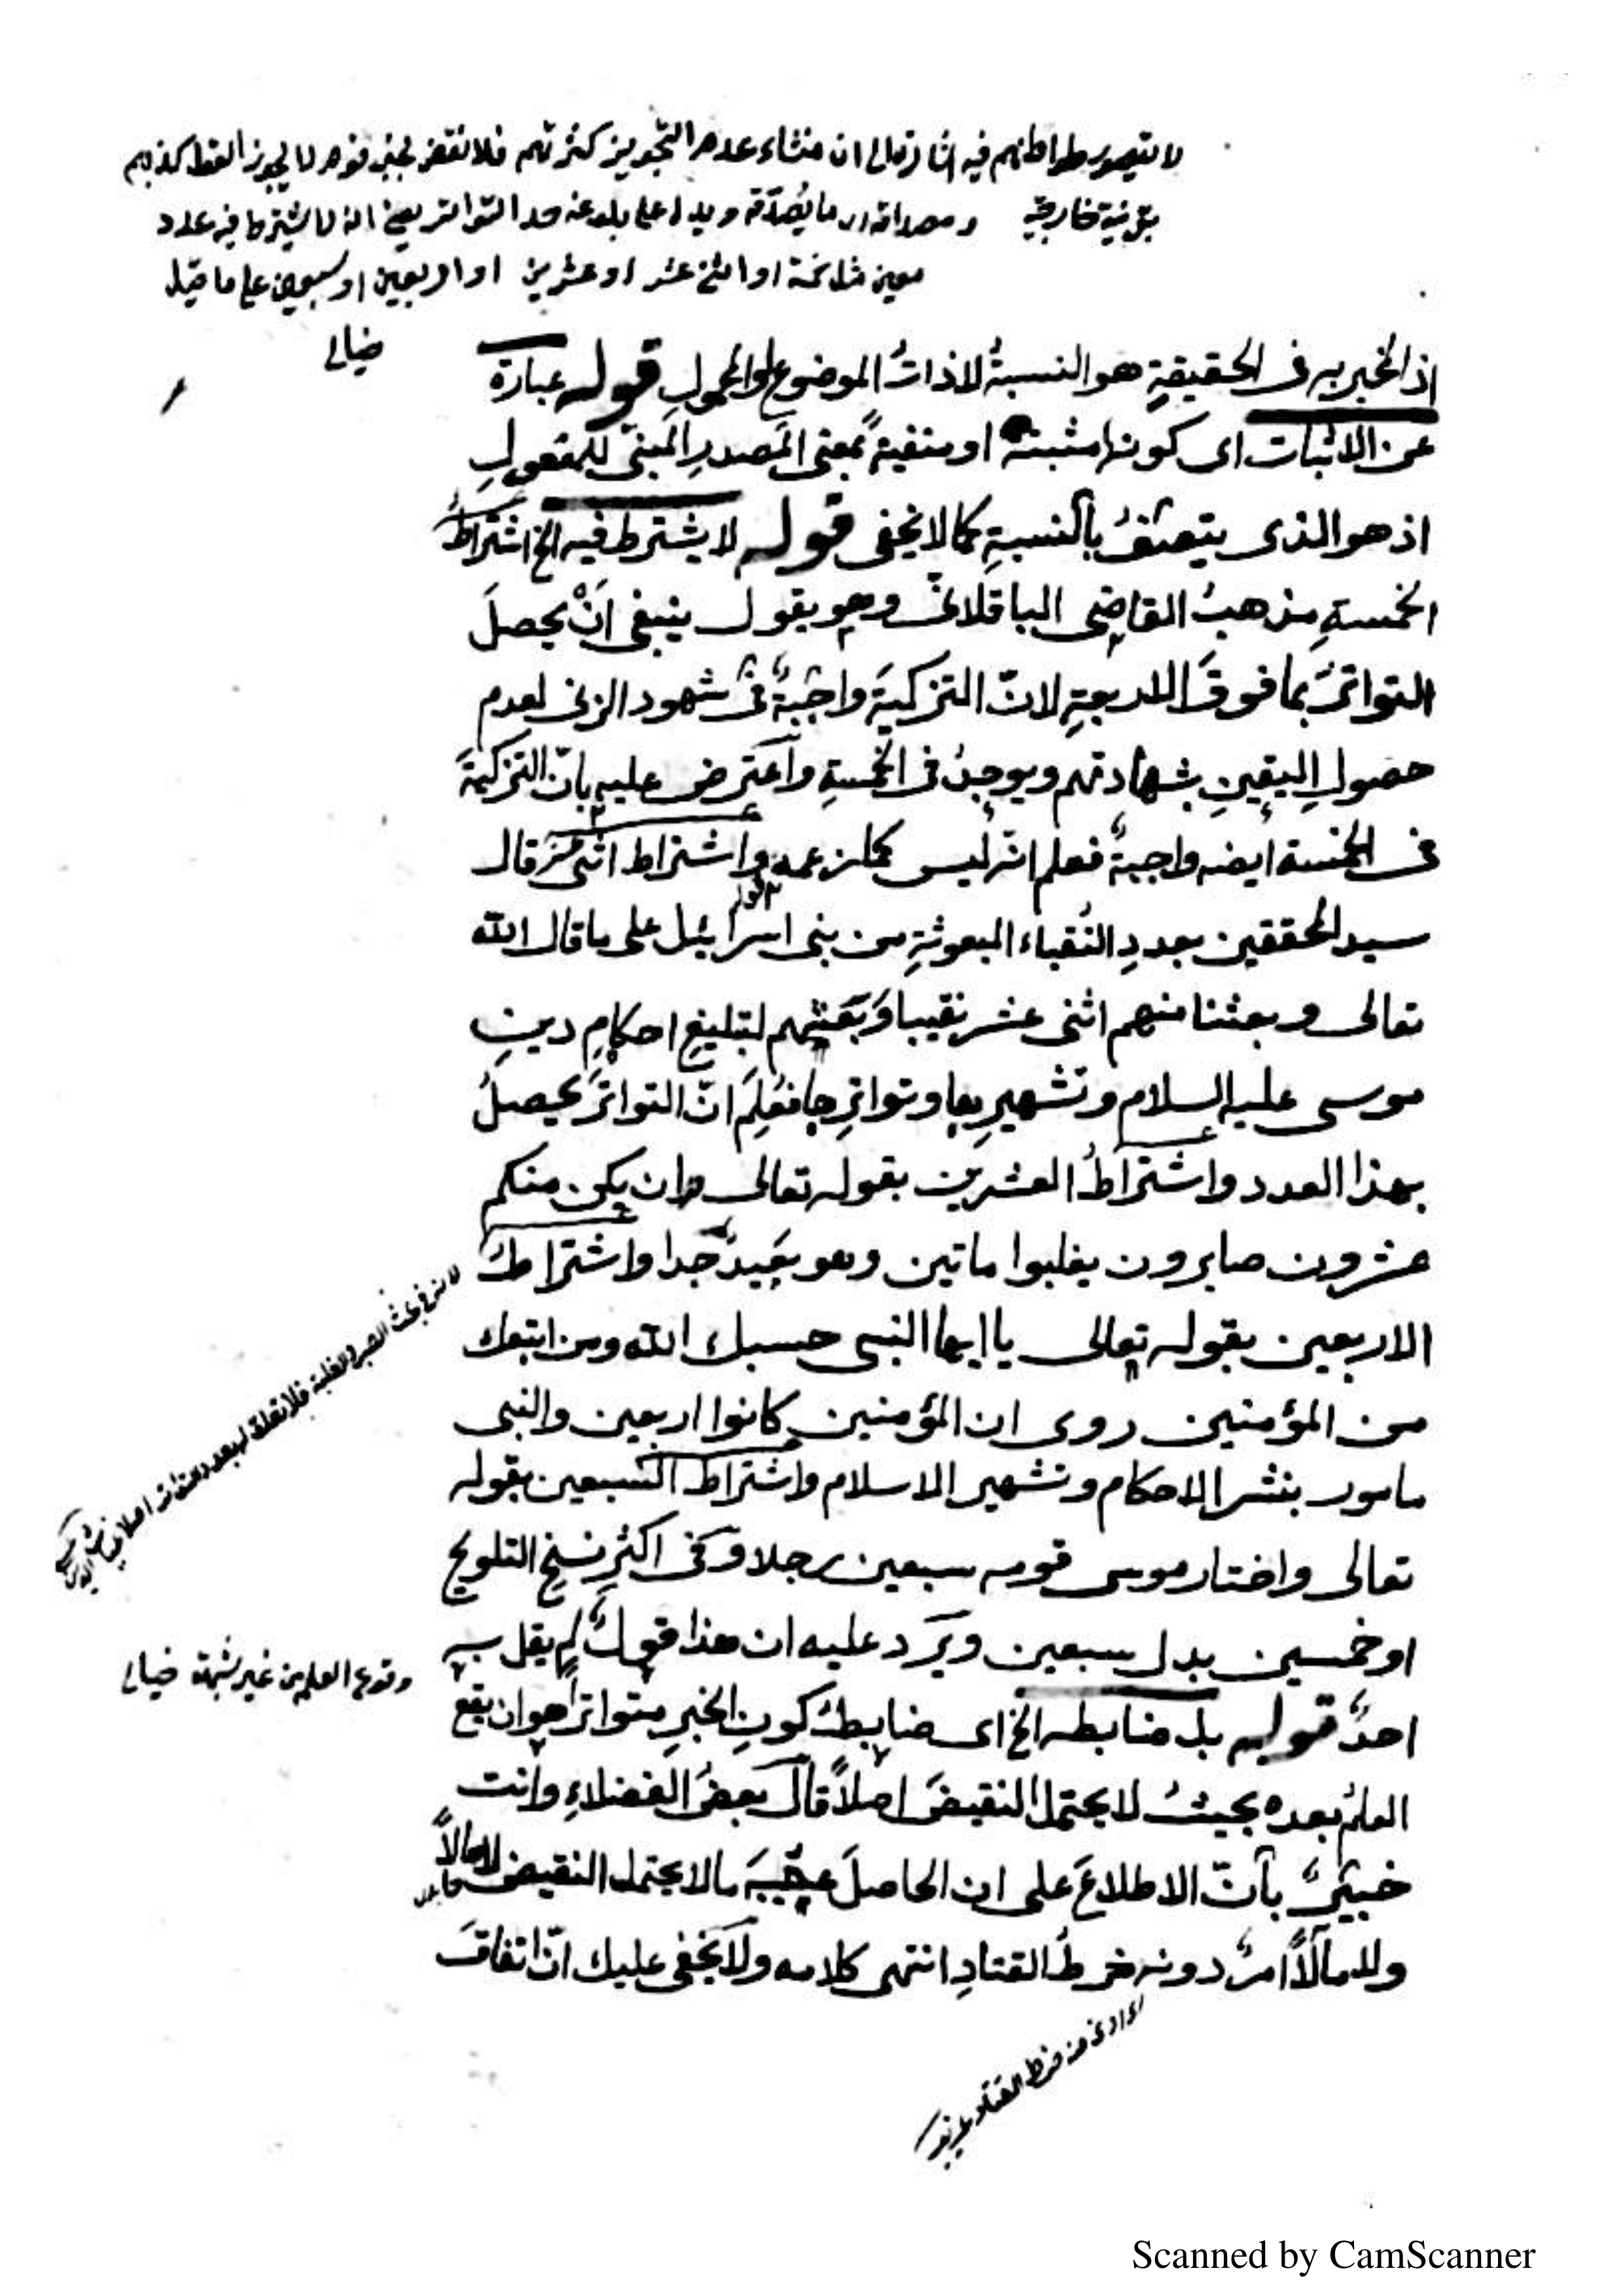 لا يتصور تواطئهم فيه اشارة الى ان منشاء عدم التجويز كثرتهم فلا نقض بخبر قوم لا يجوز العقل كذبهم
بقرينة خارجية ومصداقه اى ما يصدقه ويدل على بلوغه حد التواتر يعنى انه لا يشترط فيه عدد
معين مثل خمسة او اثنى عشر او عشرين او اربعين او سبعين على ما قيل
خيالى
اذ المخبر به فى الحقيقةِ هو النسبةُ لا ذاتُ الموضوع والمحمولِ قوله عبارة
عن الاثبات اى كونها مثبتة او منفية بمعنى المصدرِ المبنى للمفعولِ
اذ هو الذى يتصفُ بالنسبةِ كما لا يخفى قوله لا يشترط فيه الخ اشتراطُ
الخمسةِ مذهبُ القاضى الباقلانى وهو يقول ينبغى اَنْ يحصلَ
التواترُ بما فوقَ الاربعةِ لانّ التزكيةَ واجبةٌ فى شهود الزنى لعدم
حصولِ اليقينِ بشهادتهم ويوجدُ فى الخمسةِ واعترض عليه بانّ التزكيةَ
فى الخمسة ايضه واجبةٌ فعلم انه ليس كما زعمه واشتراط اثنى عشر قال
سيد المحققين بعددِ النُقباء المبعوثةِ من بنى اسرائيل على ما قال الله
تعالى وبعثنا منهم اثنى عشر نقيبا وَبَعَثَهم لتبليغِ احكامِ دينِ
موسى عليه السلام وتشهيرِها وتواترِها فعُلِمَ انّ التواترَ يحصلُ
بهذا العدد واشتراطُ العشرين بقوله تعالى وان يكن منكم
عشرون صابرون يغلبوا ماتين وهو بعيدٌ جدا واشتراطُ
الاربعين بقوله تعالى يا ايها النبى حسبك الله ومن اتبعك
من المؤمنين روى ان المؤمنين كانوا اربعين والنبى
مامور بنشر الاحكام وتشهير الاسلام واشتراط السبعين بقوله
تعالى واختار موسى قومه سبعين رجلا وفى اكثرِ نسخِ التلويح
او خمسين بدل سبعين ويَرِد عليه ان هذا قولٌ لم يقل به
وقوع العلم من غير شبهة خيالى
احدٌ قوله بل ضابطه الخ اى ضابطُ كونِ الخبرِ متواترًا هو ان يقع
العلمُ بعده بحيثُ لا يحتمل النقيضَ اصلاً قال بعضُ الفضلاءِ وانت
خبيرٌ بأنّ الاطلاعَ على ان الحاصلَ عقيبَه مالا يحتمل النقيض لا حالاً
ولا مآلاً امرٌ دونه خرطُ القتادِ انتهى كلامه ولا يَخفى عليك انّ اتفاقَ
من خرط القتاد
Scanned by CamScanner